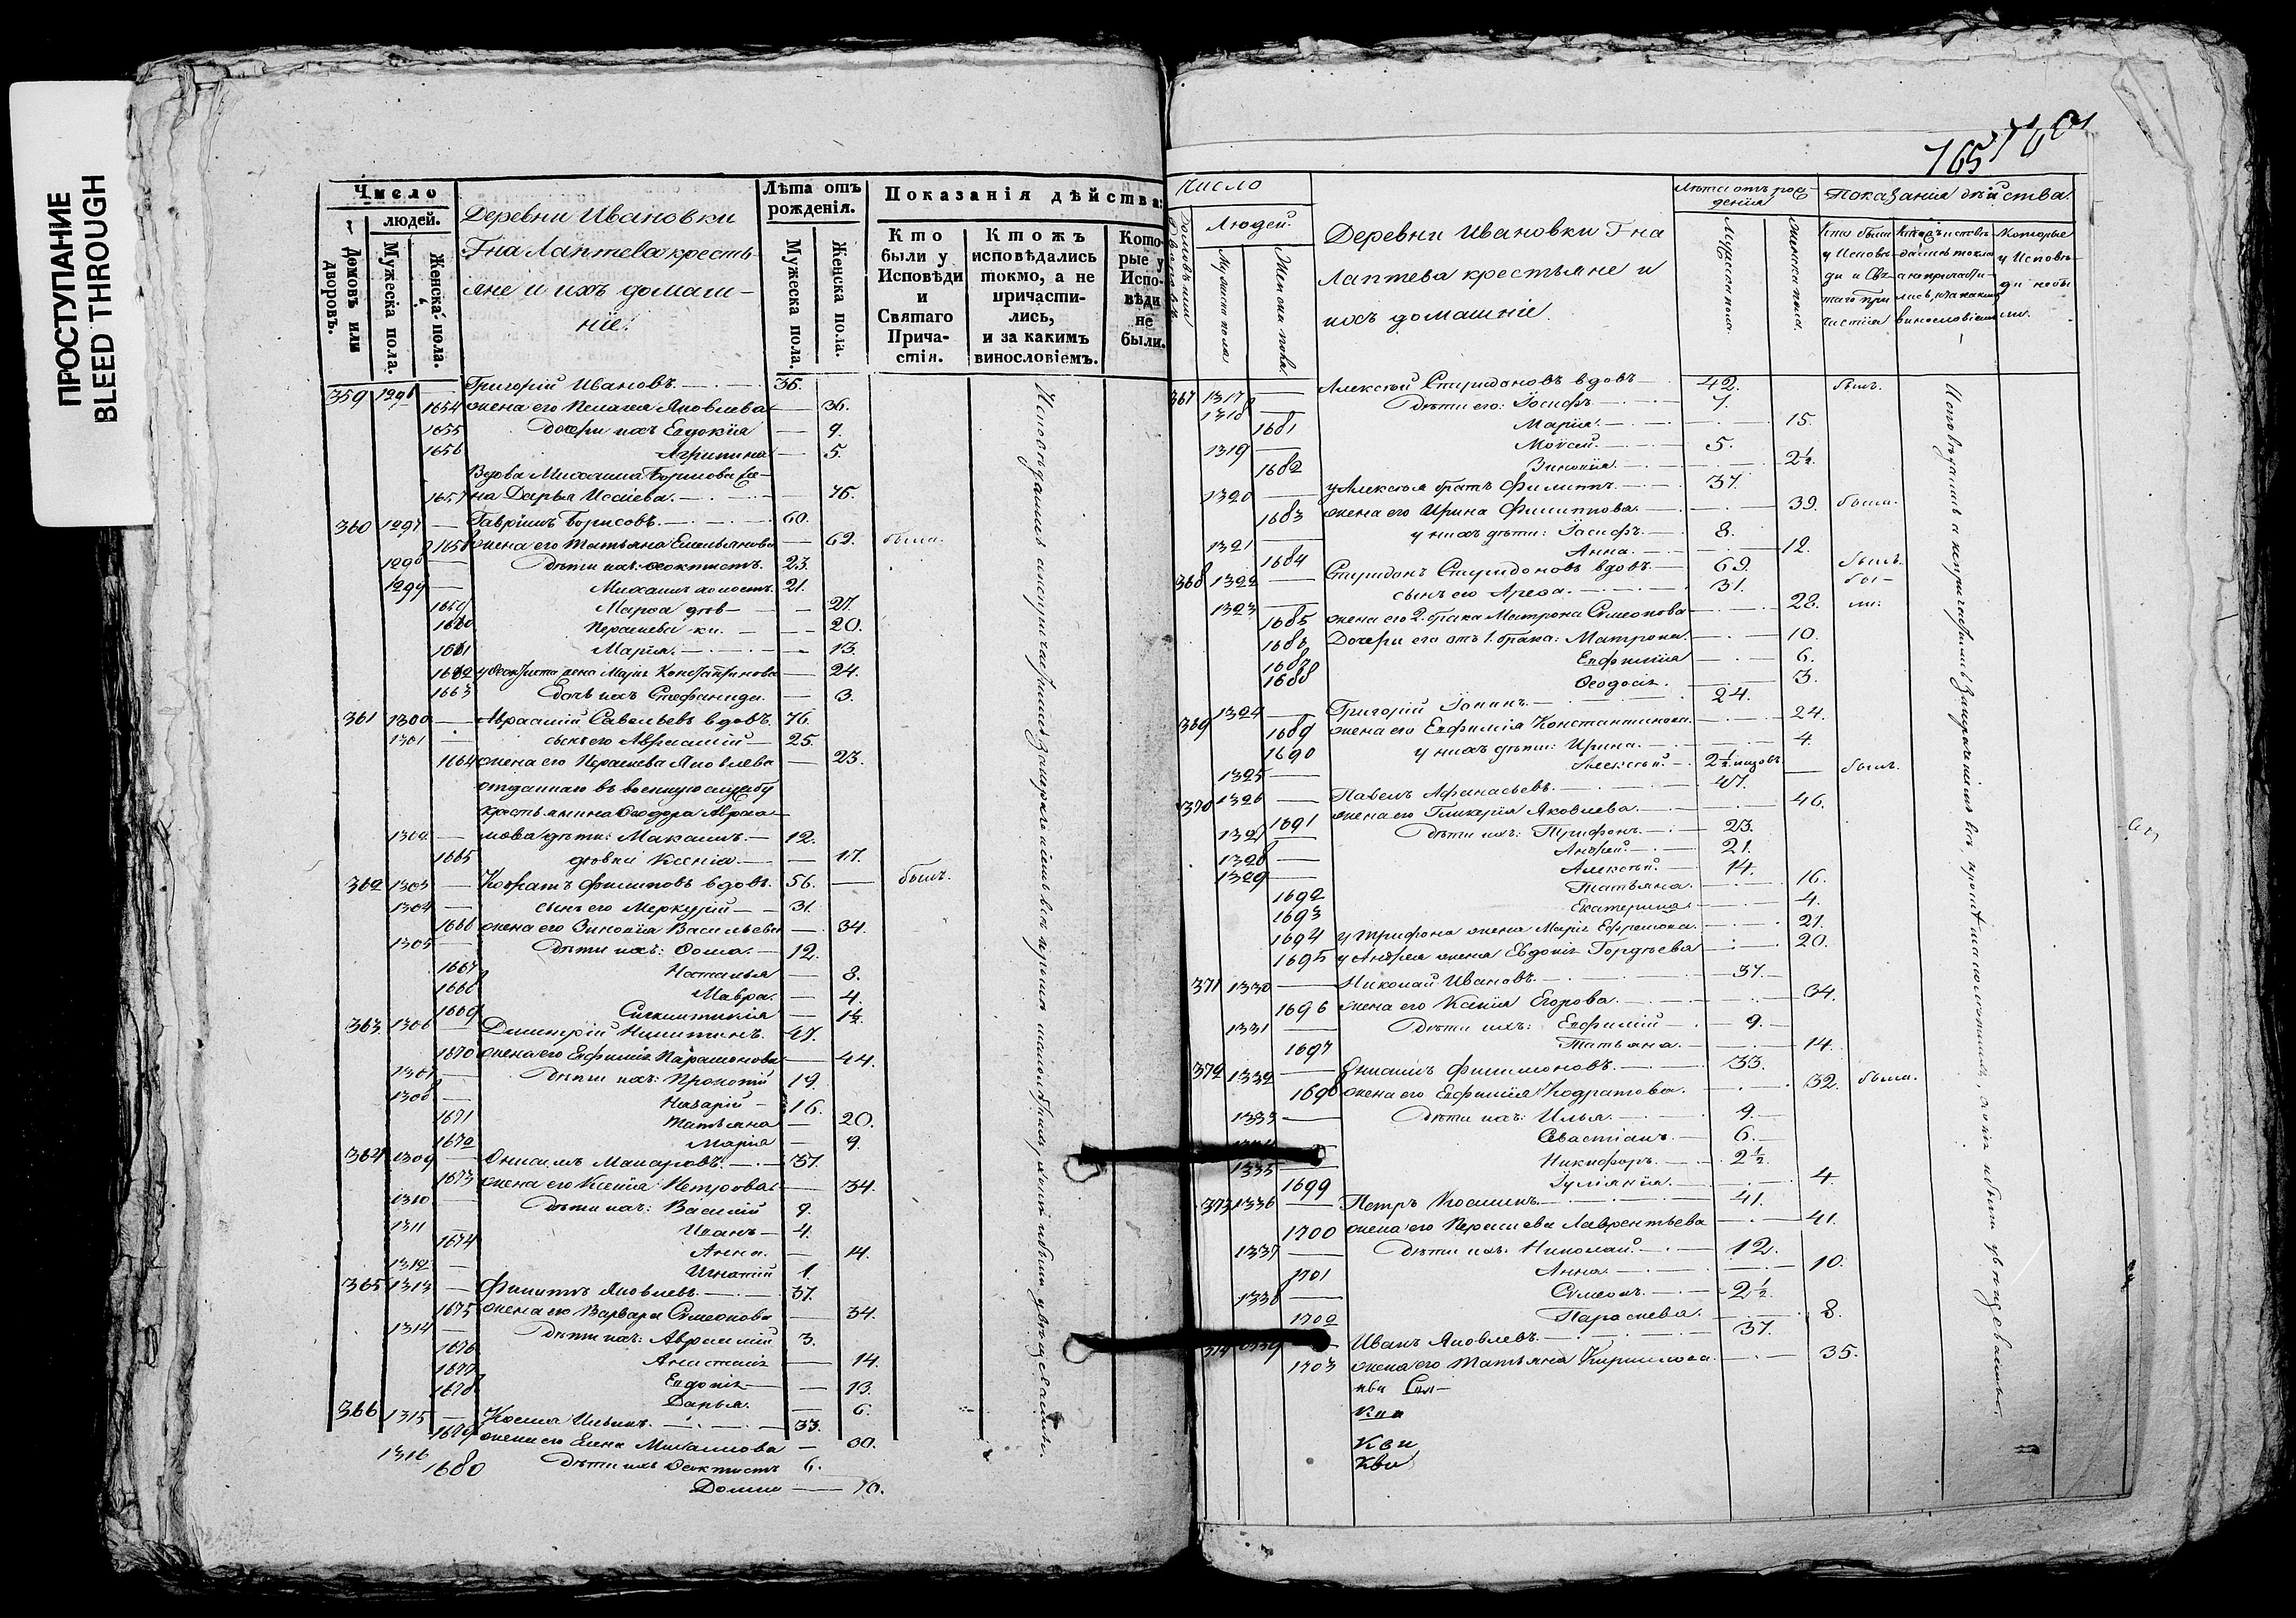 ПРОСТУПАНИЕ
BLEED THROUGH
Число
людей.
Домовъ или дворовъ.
Мужеска пола.
Женска пола.
Деревни Ивановки
Гна Лаптева кресть-
яне и ихъ домаш-
ніе.
Лѣта отъ рожденія.
Мужеска пола.
Женска пола.
Показанія дѣйства:
Кто были у Исповѣди и Святаго Прича-стія.
Ктожъ исповѣдались токмо, а не причасти-лись, и за какимъ винословіемъ.
Кото-рые у Испо-вѣди не были.
359 1296 — Григорій Ивановъ. — 36.
1654 жена его Пелагея Яковлева — 36.
1655 дочери ихъ Евдокія — 9.
1656 Агрипина — 5.
Вдова Михаила Борисова же-
1657 на Дарья Исаева. — 76.
360 1297 — Гавріилъ Борисовъ. — 60.
1658 жена его Татьяна Емельянова — 62. была.
1298 — Дѣти ихъ: Ѳеоктистъ. 23.
1299 — Михаилъ холостъ. 21.
1659 Марѳа дѣв- — 27.
1660 Параскева ки. — 20.
1661 Марія. — 13.
1662 у Ѳеоктиста жена Марія Константинова — 24.
1663 Дочь ихъ Стефанида — 3.
361 1300 — Авраамій Савельевъ вдовъ. 76.
1301 — сынъ его Авраамій — 25.
1664 жена его Параскева Яковлева — 23.
отданнаго въ военную службу
крестьянина Ѳеодора Авраа-
1302 — мова дѣти: Максимъ. — 12.
1665 дѣвка Ксенія. — 17.
362 1303 — Кодратъ Филиповъ вдовъ. 56. — былъ.
1304 — сынъ его Меркурій — 31.
1666 жена его Зиновія Васильева — 34.
1305 — Дѣти ихъ: Ѳома. — 12.
1667 Наталья — 8.
1668 Мавра. — 4.
1669 Синклитикія — 1½.
363. 1306 — Димитрій Никитинъ. 47.
1670 жена его Евфимія Парамонова — 44.
1307 — Дѣти ихъ: Прокопій 19.
1308 — Назарій — 16.
1671 Татьяна — 20.
1672 Марія — 9.
364 1309 — Онисимъ Макаровъ. — 37.
1673 жена его Ксенія Петрова — 34.
1310 — Дѣти ихъ: Василій 9.
1311 Иванъ — 4.
1674 Анна. — 14.
1312 — Игнатій 1.
365 1313 — Филиппъ Яковлевъ. — 37.
1675 жена его Варвара Симеонова — 34.
1314 — Дѣти ихъ: Авраамій 3.
1676 Анастасія — 14.
1677 Евдокія — 13.
1678 Дарья. — 6.
366 1315 — Косма Ильинъ. — 33.
1679 жена его Елена Михаилова — 30.
1316 Дѣти ихъ Ѳеоктистъ 6.
1680 Домна — 10.
765
Число
Людей.
Мужеска пола
Женска пола
Деревни Ивановки Гна
Лаптева крестьяне и
ихъ домашніе.
Лѣта отъ рож-
денія
Мужеска пола.
Женска пола.
Показанія дѣйства.
Кто были у Исповѣ-ди и Свя-таго При-частія
Которые у Исповѣ-ди не бы-ли.
367 1317 — Алексѣй Спиридоновъ вдовъ — 42. былъ.
1318 — Дѣти его: Іосифъ. — 7.
1681 Марія. — 15.
1319 — Моѵсей. — 5.
1682 Зиновія. — 2½.
1320 — у Алексѣя братъ Филиппъ. — 37.
1683 жена его Ирина Филиппова. — 39. была.
1321 — у нихъ дѣти: Іосифъ. — 8.
1684 Анна. — 12.
368 1322 — Спиридонъ Спиридоновъ вдовъ. — 69. былъ.
1323 — сынъ его Ареѳа. — 31. бы-
1685 жена его 2. брака Матрона Симеонова — 28. ли:
1686 Дочери его отъ 1. брака: Матрона. — 10.
1687 Евфимія — 6.
1688 Ѳеодосія. — 3.
369 1324 — Григорій Іонинъ. — 24.
1689 жена его Евфимія Константинова. — 24.
1690 у нихъ дѣти: Ирина. — 4.
1325 — Алексѣй. — 2½
370 1326 — Павелъ Аѳанасьевъ. — 47. былъ.
1691 жена его Гликерія Яковлева. — 46.
1327 — Дѣти ихъ: Трифонъ. — 23.
1328 — Андрей. — 21.
1329 — Алексѣй. — 14.
1692 Татьяна. — 16.
1693 Екатерина. — 4.
1694 у Трифона жена Марія Ефремова. — 21.
1695 у Андрея жена Евдокія Гордѣева — 20.
371 1330 — Николай Ивановъ. — 37.
1696 жена его Ксенія Егорова. — 34.
1331 — Дѣти ихъ: Евфимій — 9.
1697 Татьяна. — 14.
372 1332 — Онисимъ Филимоновъ. — 33.
1698 жена его Евфимія Кодратова. — 32. была.
1333 — Дѣти ихъ: Илья. — 9.
1334 — Севастіанъ. — 6.
1335 — Никифоръ. — 2½.
1699 Іуліанія. — 4.
373 1336 — Петръ Косминъ. — 41.
1700 жена его Параскева Лаврентьева — 41.
1337 — Дѣти ихъ: Николай. — 12.
1701 Анна. — 10.
1338 — Симеонъ. — 2½.
1702 Параскева. — 8.
374 1339 — Иванъ Яковлевъ. — 37.
1703 жена его Татьяна Кирилова. — 35.